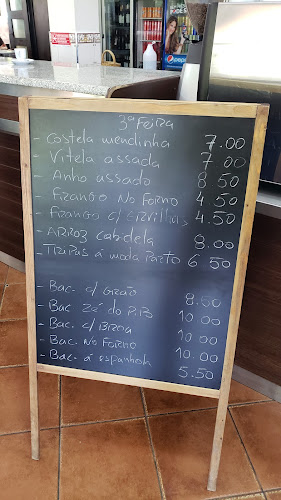 3ª Feira
- Costela mendinha 7.00
- Vitela assada 7.00
- Anho assado 8 50
- Frango No Forno 4.50
- Frango c/ Ervilhas 4.50
- ARROZ Cabidela 8.00
- TRIPAS á moda Porto 6 50
- Bac. c/ Grão 8.50
- Bac Zé do P.P.
10.00
- Bac. c/ Broa 10.00
- Bac. No Forno 10.00
- Bac. á espanhola 5.50
pepsi